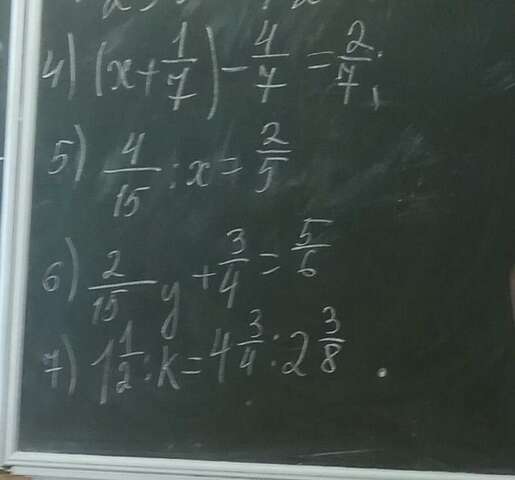 4) (x + 1/7) - 4/7 = 2/7;
5) 4/15 : x = 2/5
6) 2/15 y + 3/4 = 5/6
7) 1 1/2 : k = 4 3/4 : 2 3/8.